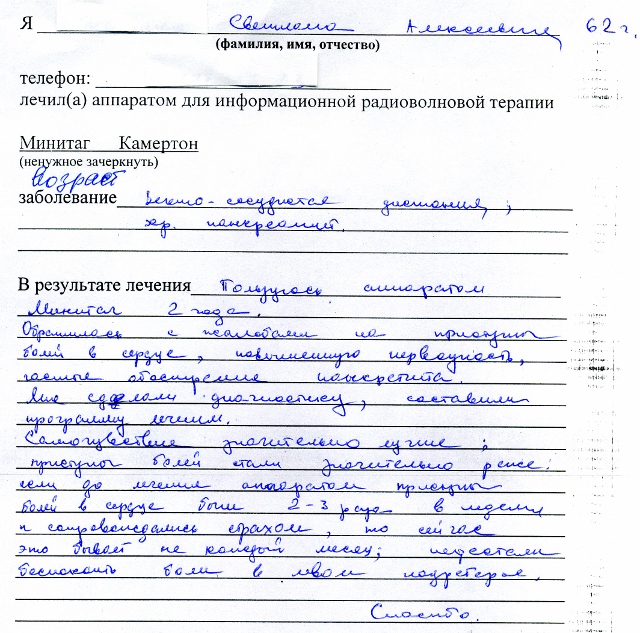 Я Светлана Алексеевна 62 г.
(фамилия, имя, отчество)
телефон:
лечил(а) аппаратом для информационной радиоволновой терапии
Минитаг Камертон
(ненужное зачеркнуть)
возраст
заболевание Вегето-сосудистая дистония;
хр. панкреатит.
В результате лечения Пользуюсь аппаратом
Минитаг 2 года.
Обратилась с жалобами на приступы
болей в сердце, повышенную нервозность,
частые обострения панкреатита.
Мне сделали диагностику, составили
программу лечения.
Самочувствие значительно лучше;
приступы болей стали значительно реже:
если до лечения аппаратом приступы
болей в сердце были 2-3 раза в неделю
и сопровождались страхом, то сейчас
это бывает не каждый месяц; перестали
беспокоить боли в левом подреберье.
Спасибо.